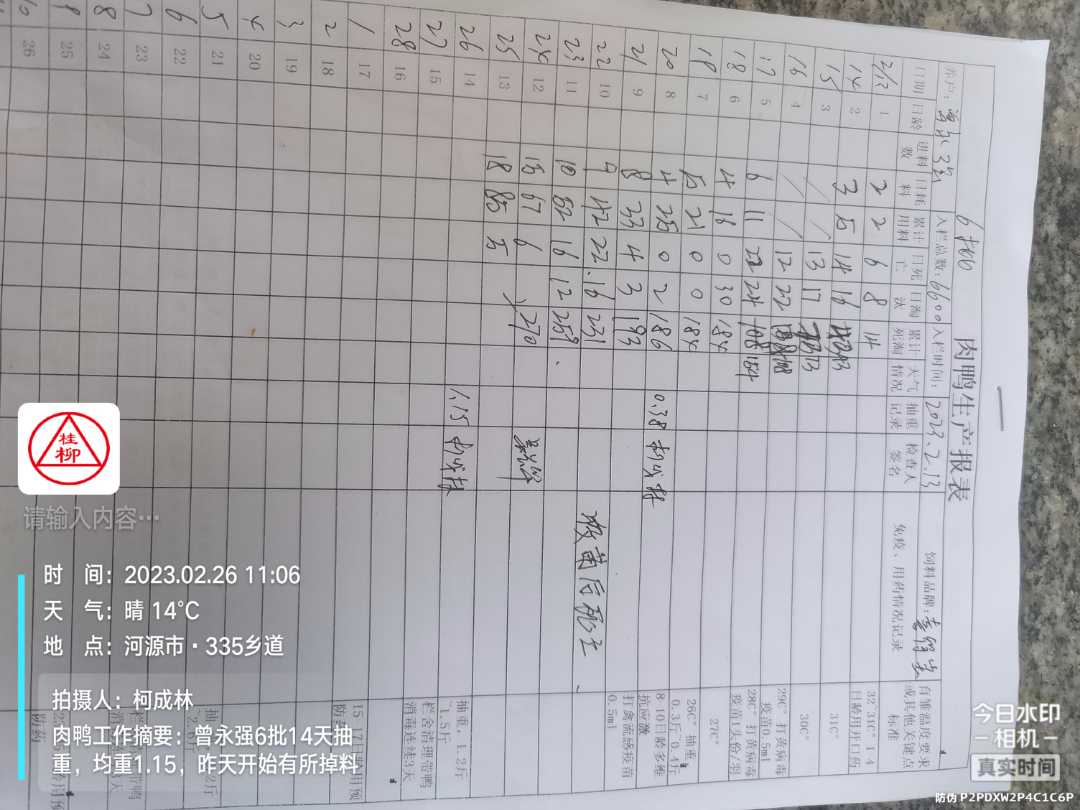 肉鸭生产报表
6批
养户：曾永强 入栏总数：6600 入栏时间：2023.2.13 饲料品牌：
日期 日龄 进料数 日耗料 累计用料 日死亡 日淘汰 累计死淘 天气情况 抽重记录 检查人签名 免疫、用药情况记录 育雏温度要求或其他关键点标准
2/13 1 2 2 6 8 14 32°31C°1-4日龄用开口药
14 2 3 5 14 16 31C°
15 3 / / 13 17 30C°
16 4 / / 12 22 29C°打黄病毒疫苗0.5ml
17 5 6 11 22 24 154 28C°打黄病毒疫苗1头份/型
18 6 4 16 0 30 184 27C°
19 7 5 21 0 0 184 26C°抽重0.3斤-0.4斤
20 8 4 25 0 2 186 0.38 柯成林 8-10日龄多维抗应激
21 9 8 33 4 3 193 打禽流感疫苗0.5ml
22 10 9 42 22 16 231 疫苗后死亡
23 11 10 52 16 12 259
24 12 15 67 6 270
25 13 18 85 5
26 14 1.15 柯成林 抽重，1.2斤-1.5斤
27 15 栏舍清理带鸭消毒连续3天
28 16
1 17
2 18
3 19
4 20
5 21
6 22
7 23
8 24
9 25
10 26
桂柳
请输入内容…
时 间：2023.02.26 11:06
天 气：晴 14℃
地 点：河源市·335乡道
拍摄人：柯成林
肉鸭工作摘要：曾永强6批14天抽
重，均重1.15，昨天开始有所掉料
今日水印
相机
真实时间
防伪 P2PDXW2P4C1C6P